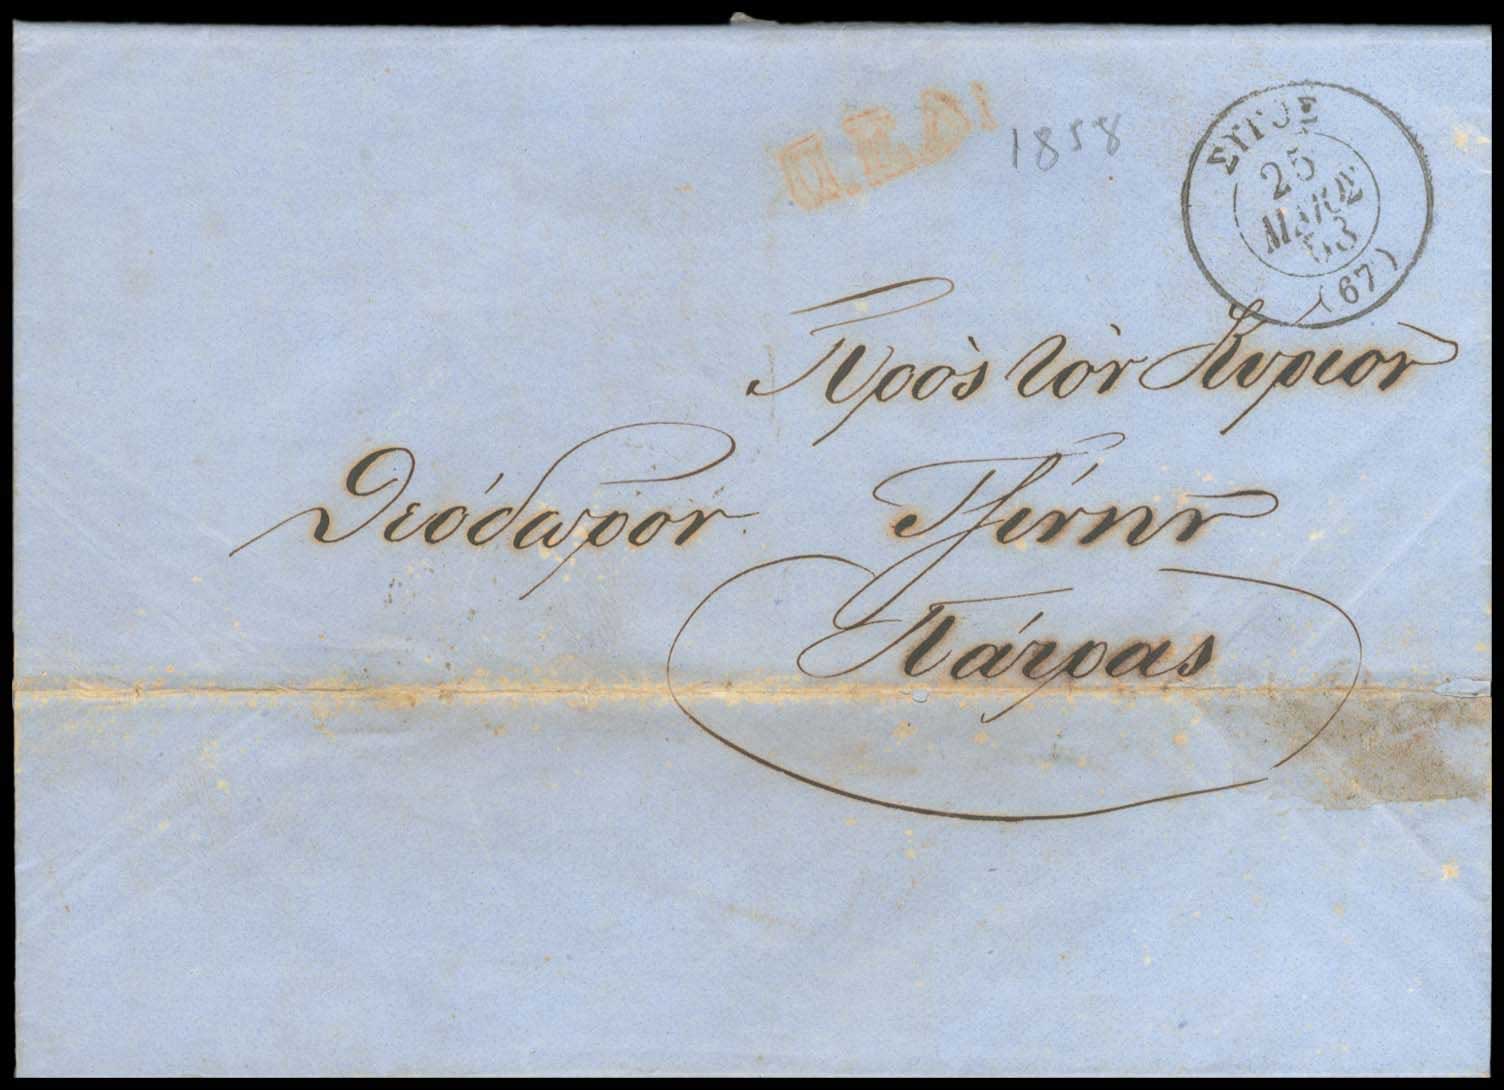 1858
ΣΥΡΟΣ
25
ΜΑΡΣ
(67)
Πρὸς τὸν Κυριον
Θεόδωρον Τζίνην
Πάτρας